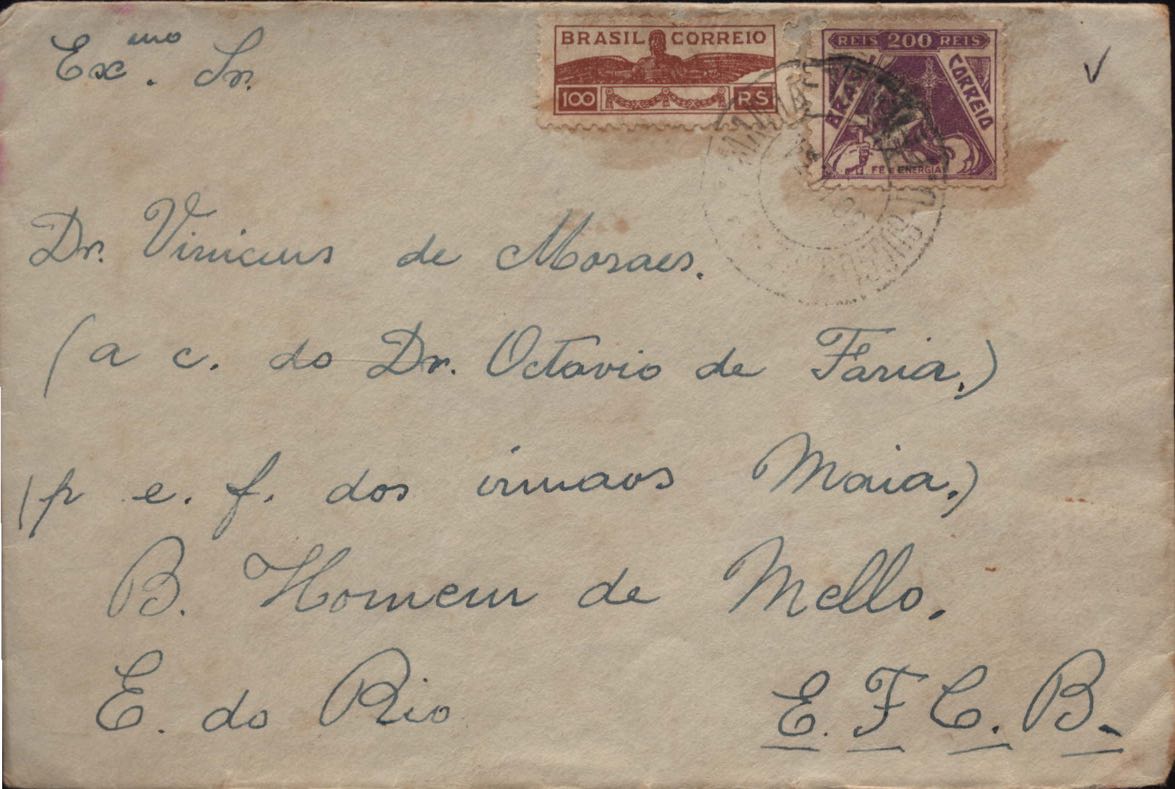 BRASIL CORREIO
100 RS
REIS 200 REIS
BRASIL CORREIO
FÉ E ENERGIA
Exmo. Snr.
Dr. Vinicius de Moraes.
(a c. do Dr. Octavio de Faria.)
(p e. f. dos irmaos Maia.)
B. Homem de Mello.
E. do Rio
E. F. C. B.